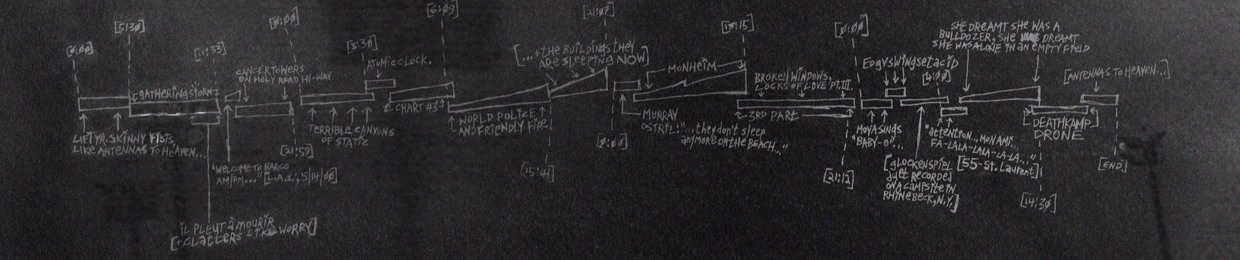 [0:00]
[5:30]
[11:33]
LIFT YR. SKINNY FISTS,
LIKE ANTENNAS TO HEAVEN...
GATHERING STORM
IL PLEUT À MOURIR
[+CLATTERS LIKE WORRY]
"WELCOME TO BARCO
AM/PM..." [L.A.X., 5/14/00]
CANCER TOWERS
ON HOLY ROAD HI-WAY
[21:59]
[0:00]
TERRIBLE CANYONS
OF STATIC
[5:30]
ATOMIC CLOCK.
CHART #3
[6:09]
WORLD POLICE
AND FRIENDLY FIRE
[15:41]
[...+THE BUILDINGS THEY
ARE SLEEPING NOW]
[0:00]
MURRAY
OSTRIL: "...they don't sleep
anymore on the beach..."
MONHEIM
BROKEN WINDOWS,
LOCKS OF LOVE PT. III.
3RD PART
[21:12]
[0:00]
MOYA SINGS
"BABY-O"...
EDGYSWINGSETACID
[GLOCKENSPIEL
DUET RECORDED
ON A CAMPSITE IN
RHINEBECK, N.Y.]
"attention...mon ami...
FA-LALA-LALA-LA-LA..."
[55-St. Laurent]
SHE DREAMT SHE WAS A
BULLDOZER, SHE DREAMT
SHE WAS ALONE IN AN EMPTY FIELD
[14:30]
DEATHKAMP
DRONE
[ANTENNAS TO HEAVEN...]
[END]